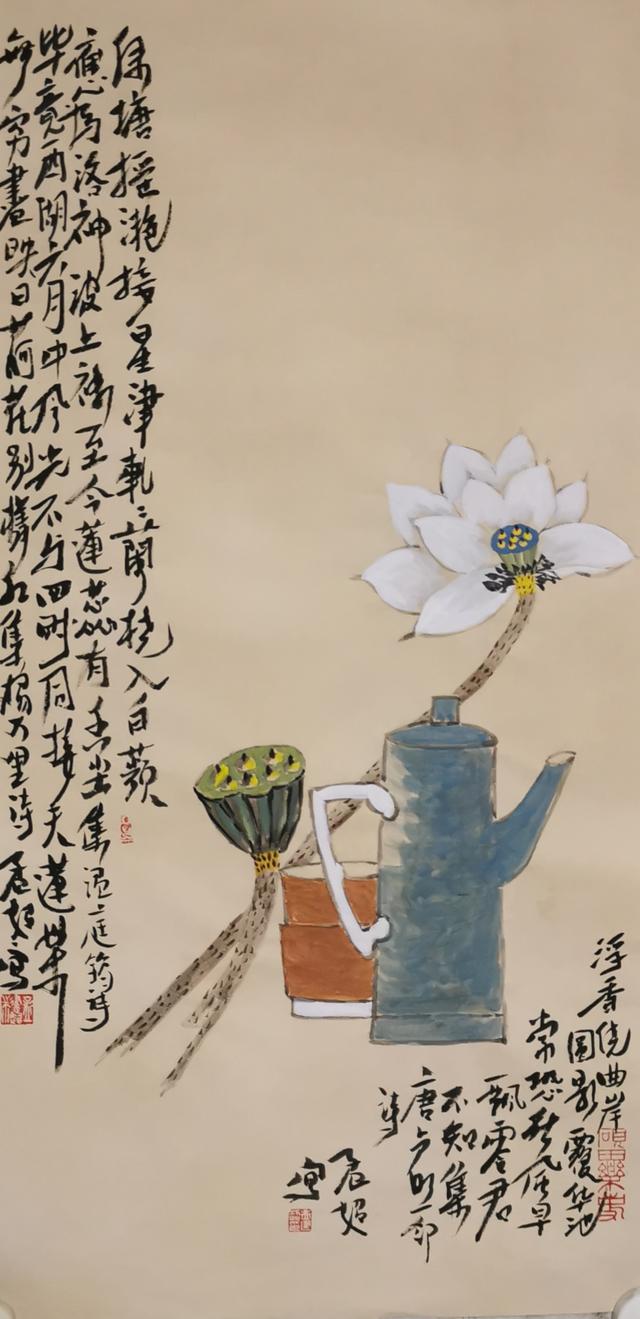 绿塘摇滟接星津軋々蘭桡入白蘋
應為洛神波上襪至今蓮蕊有香尘集温庭筠诗
毕竟西湖六月中风光不与四时同接天蓮葉
無穷畫映日荷花别樣红集楊万里诗 写
浮香绕曲岸
圆影覆华池
常恐秋风早
飘零君
不知集
唐卢照邻
诗
写